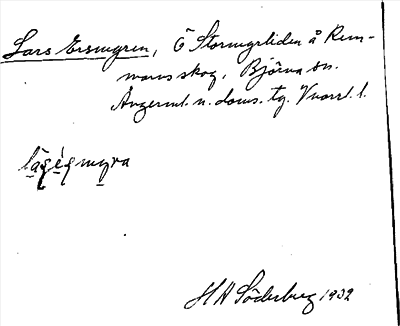 Lars Ersmyren, Ö Stormyrliden å Rem-
mars skog, Björna sn.
Ångerml. n. doms. tg. Vnorrl. l.
lågégmyra
H H Söderberg 1932